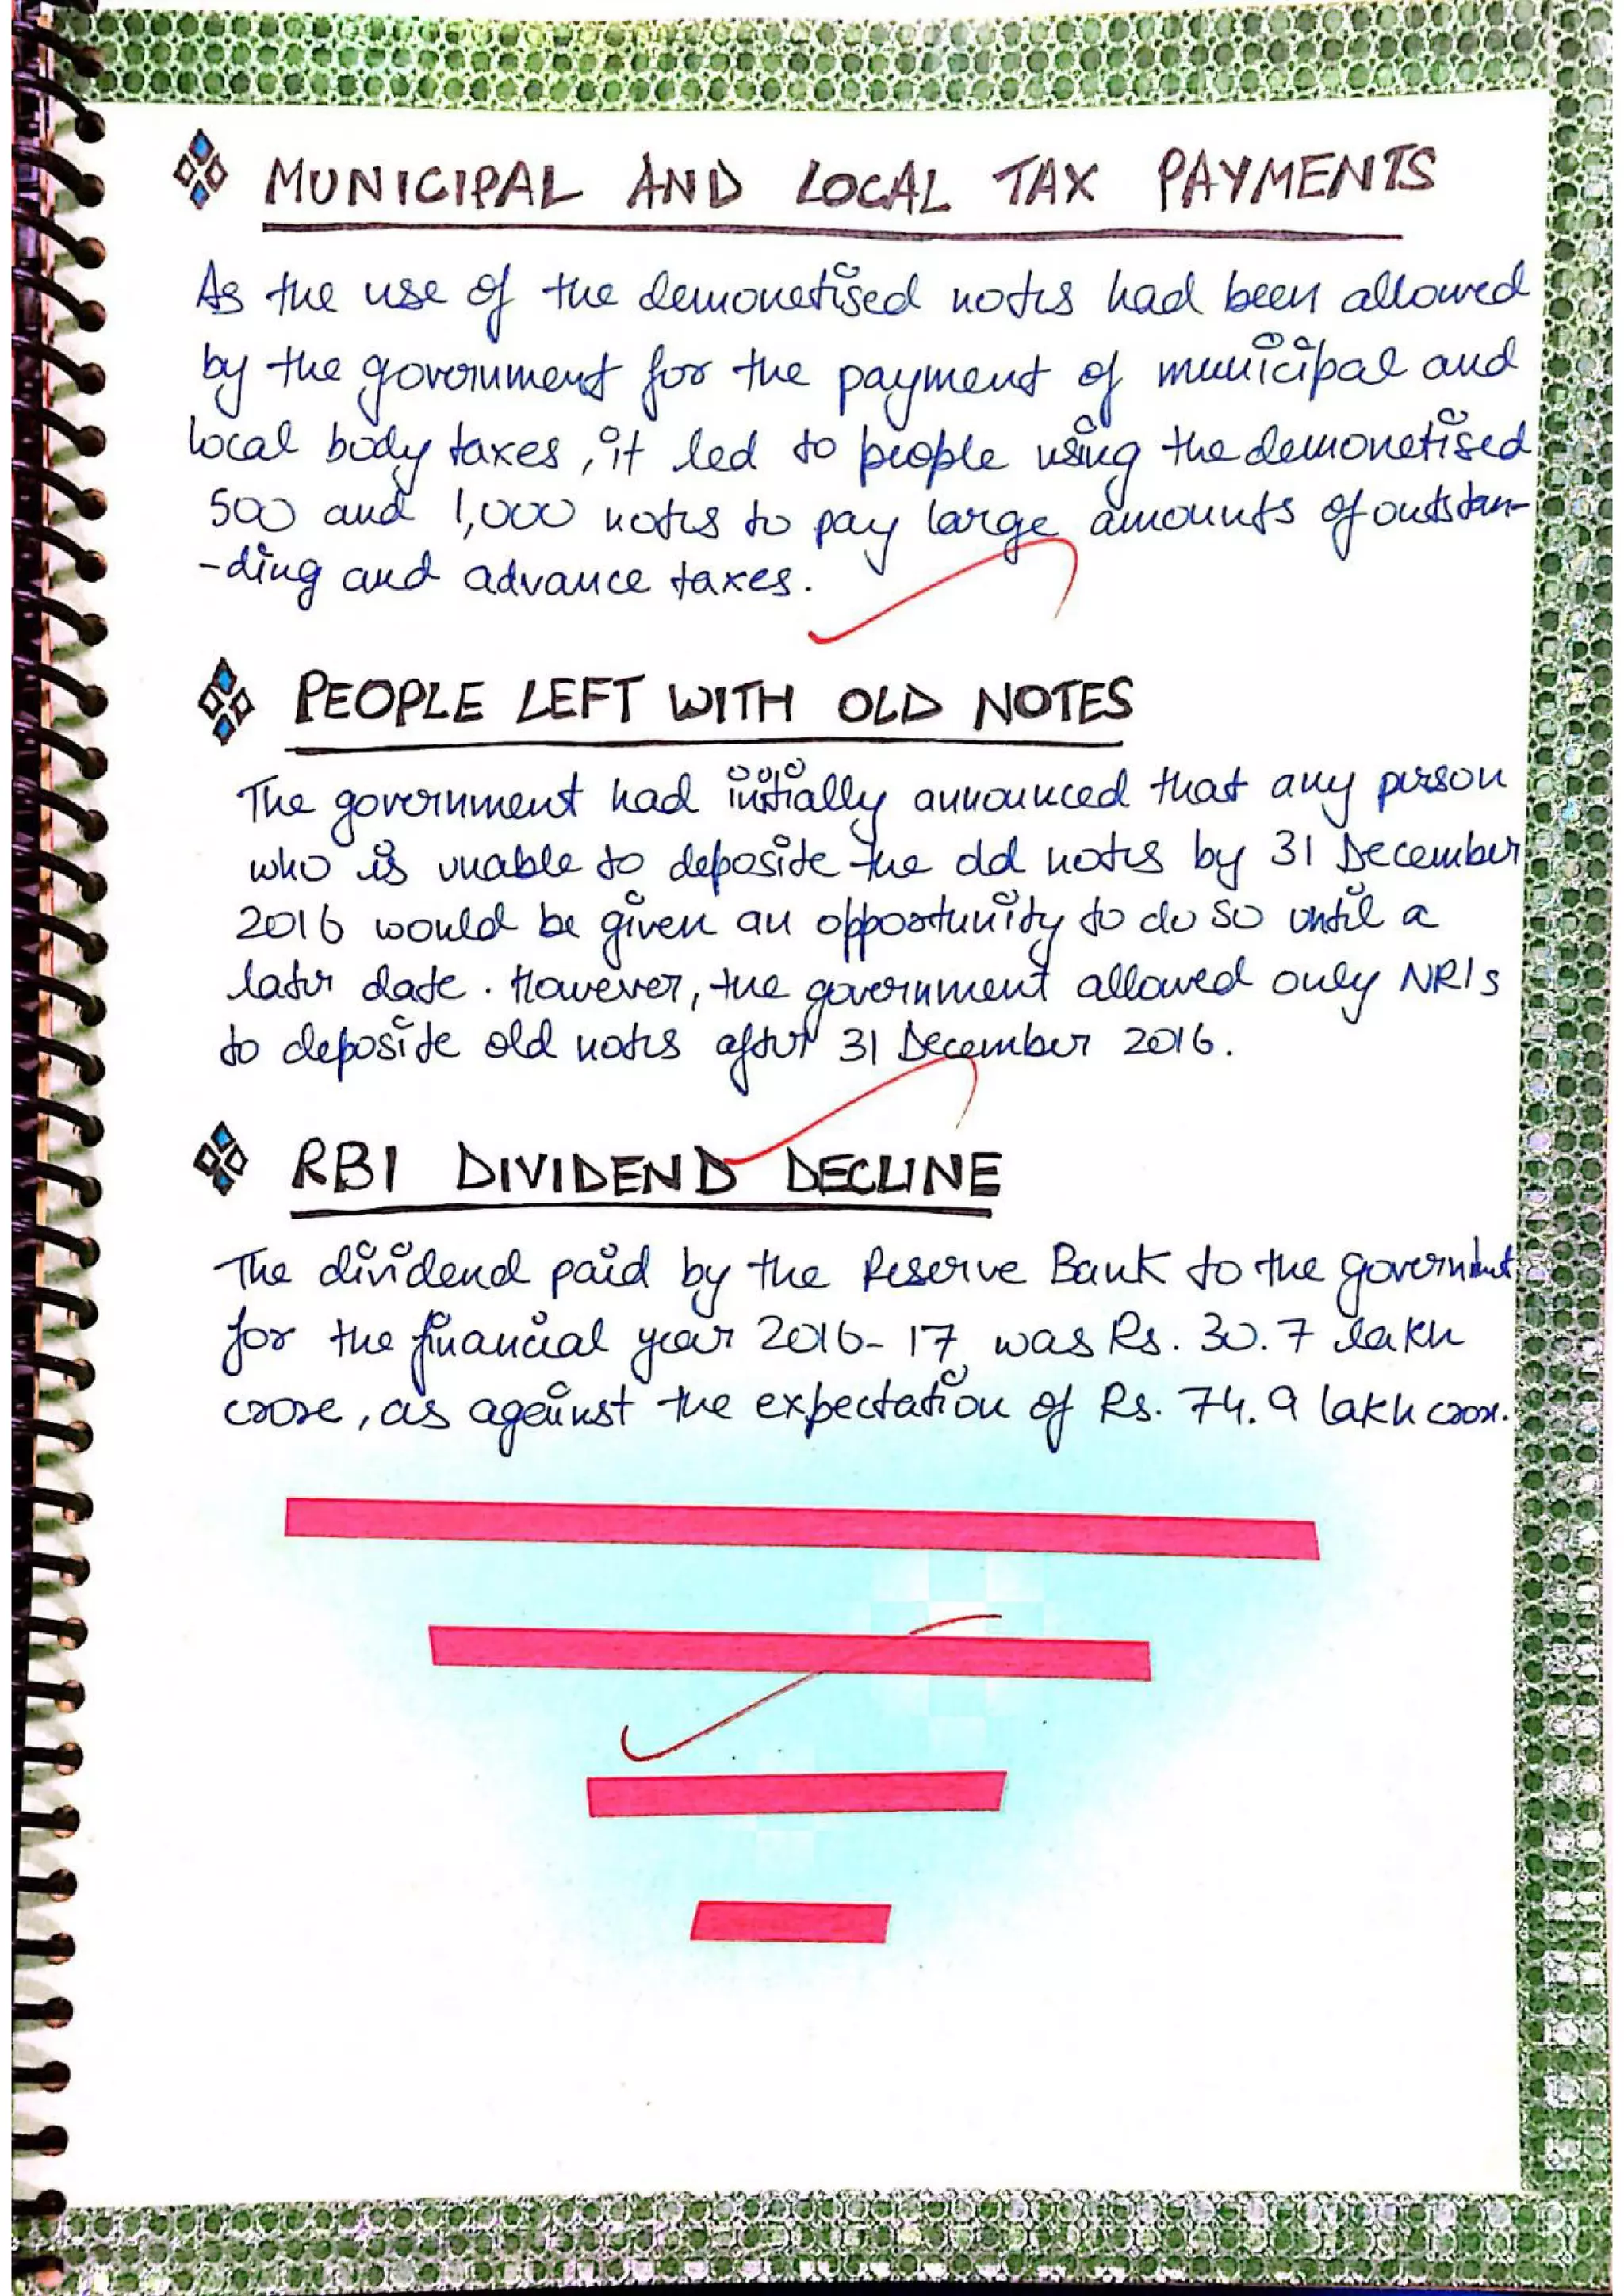 MUNICIPAL AND LOCAL TAX PAYMENTS
As the use of the demonetised notes had been allowed
by the government for the payment of municipal and
local body taxes, it led to people using the demonetised
500 and 1,000 notes to pay large amounts of outstan-
-ding and advance taxes.
PEOPLE LEFT WITH OLD NOTES
The government had initially announced that any person
who is unable to deposite the old notes by 31 December
2016 would be given an opportunity to do so until a
later date. However, the government allowed only NRIs
to deposite old notes after 31 December 2016.
RBI DIVIDEND DECLINE
The dividend paid by the Reserve Bank to the government
for the financial year 2016-17 was Rs. 30.7 lakh
crore, as against the expectation of Rs. 74.9 lakh crore.